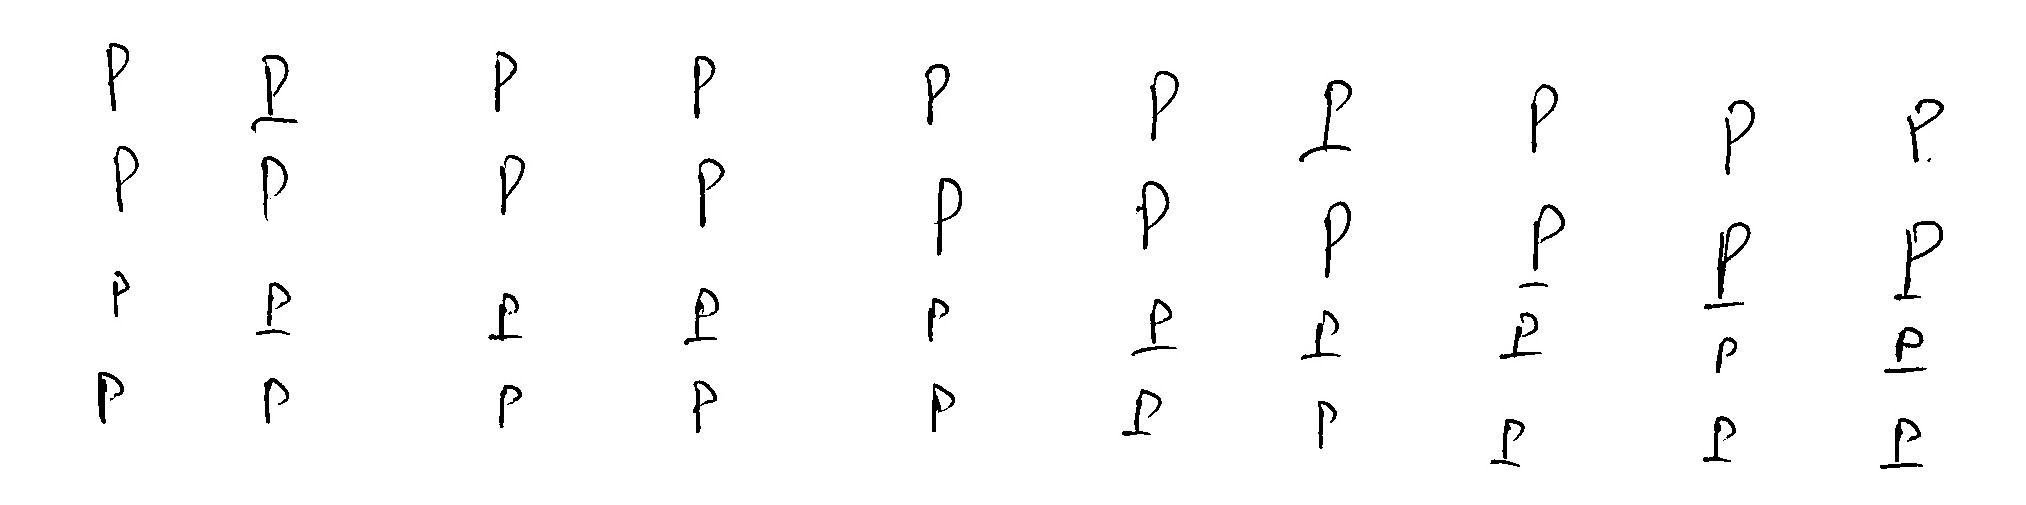 P P̲ P P P P P̲ P P P.
P P P P P P P P̲ P̲ P̲
P P̲ P̲ P̲ P P̲ P̲ P̲ P P̲
P P P P P P̲ P P̲ P̲ P̲